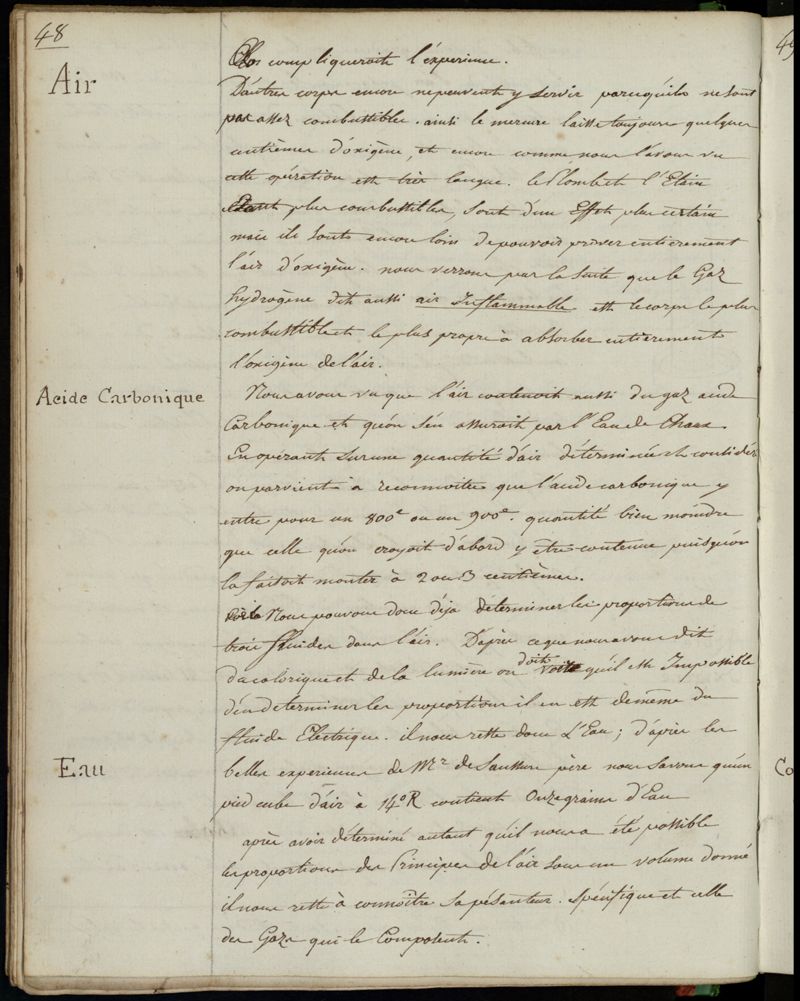 48
Air
compliqueroit l'éxperience.
D'autres corps encore ne peuvent y servir parcequ'ils ne sont
pas assez combustibles. ainsi le mercure laisse toujours quelques
centièmes d'oxigène, et encore comme nous l'avons vu
cette opération est très longue. le Plomb et l'Etain
plus combustibles, sont d'un Effet plus certain
mais ils sont encore loin de pouvoir priver entierement
l'air d'oxigène. nous verrons par la Suite que le Gaz
hydrogène dit aussi air Inflammable est le corps le plus
combustible et le plus propre à absorber entièrement
l'oxigène de l'air.
Acide Carbonique
Nous avons vu que l'air contenoit aussi du gaz acide
Carbonique et qu'on s'en assuroit par l'Eau de Chaux.
En opérant sur une quantité d'air déterminée et considér
on parvient à reconnoitre que l'acide carbonique y
entre pour un 800e ou un 900e. quantité bien moindre
que celle qu'on croyoit d'abord y être contenue puisqu'on
la faisoit monter à 2 ou 3 centièmes.
Nous pouvons donc déja déterminer les proportions de
trois fluides dans l'air. D'après ce que nous avons dit
du calorique et de la lumière on doit voir qu'il est Impossible
d'en determiner les proportions il en est de même du
fluide Electrique. il nous reste donc L'Eau; d'après les
Eau
belles experiences de Mr de Saussure père nous savons qu'un
pied cube d'air à 14° R contient Onze grains d'Eau
après avoir déterminé autant qu'il nous a été possible
les proportions des Principes de l'air sous un volume donné
il nous reste à connoître sa pésanteur Spécifique et celle
des Gazs qui le Composent.
49
Co